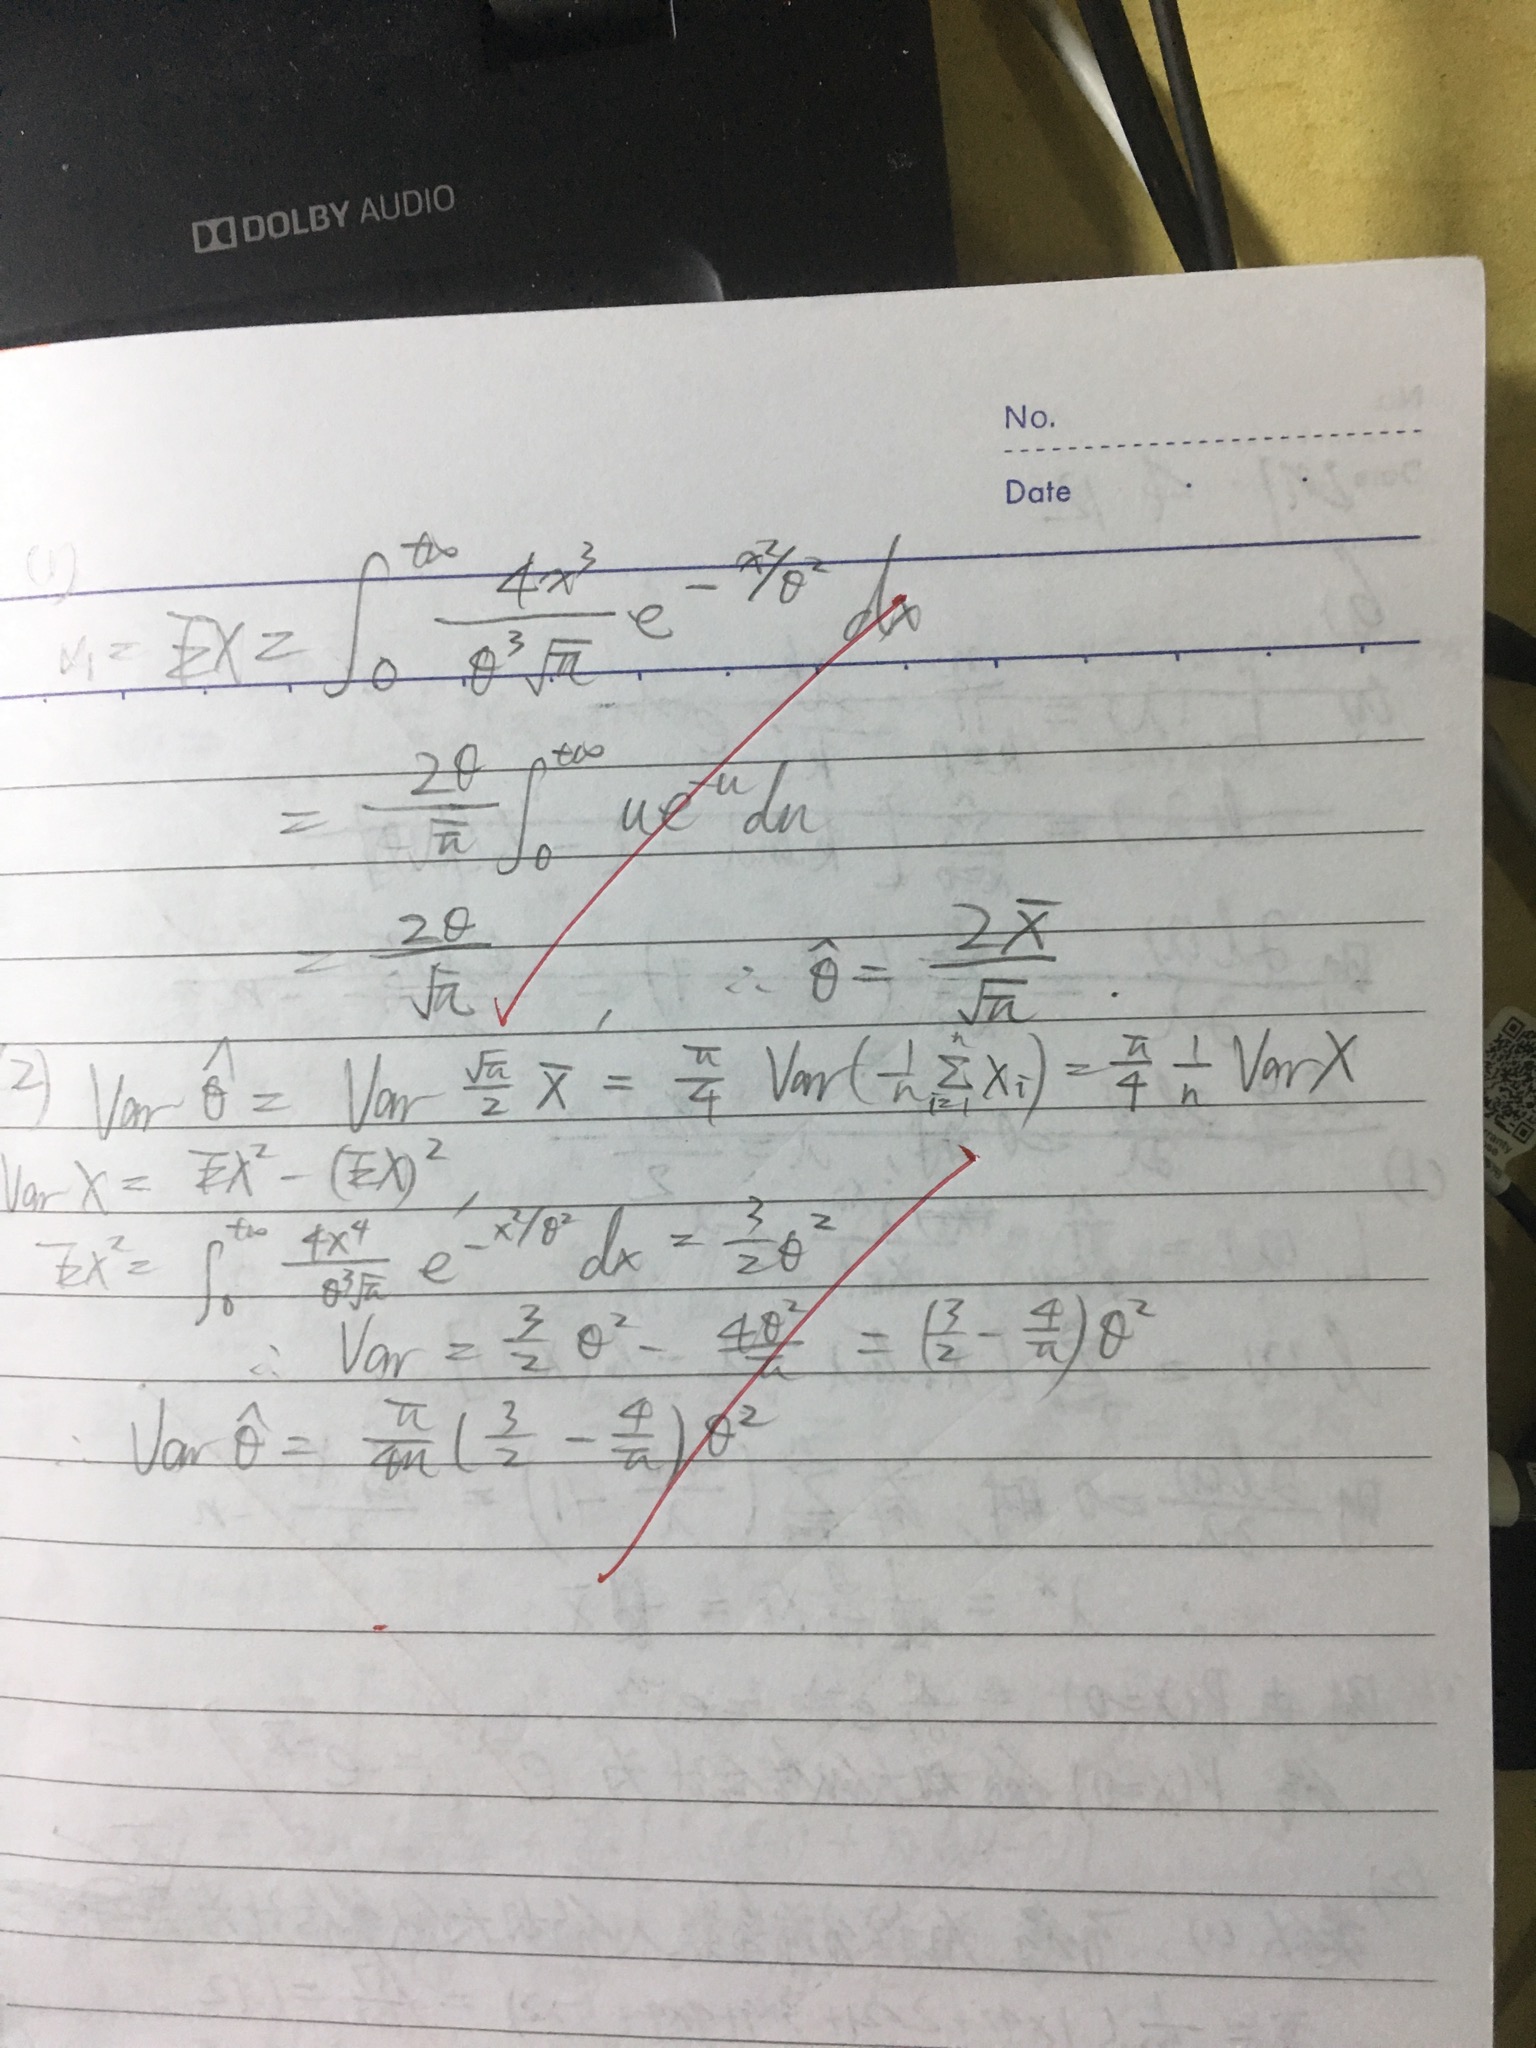 DOLBY AUDIO
No.
Date
(1)
α₁ = EX = ∫₀^{+∞} \frac{4x³}{θ³√π} e^{-x²/θ²} dx
= \frac{2θ}{√π} ∫₀^{+∞} u e^{-u} du
= \frac{2θ}{√π} , ∴ θ̂ = \frac{2X̄}{√π} .
2) Var θ̂ = Var \frac{√π}{2} X̄ = \frac{π}{4} Var(\frac{1}{n} Σ_{i=1}^{n} X_i) = \frac{π}{4} \frac{1}{n} Var X
Var X = EX² - (EX)² ,
EX² = ∫₀^{+∞} \frac{4x⁴}{θ³√π} e^{-x²/θ²} dx = \frac{3}{2} θ²
∴ Var = \frac{3}{2} θ² - \frac{4θ²}{π} = (\frac{3}{2} - \frac{4}{π}) θ²
∴ Var θ̂ = \frac{π}{4n} (\frac{3}{2} - \frac{4}{π}) θ²